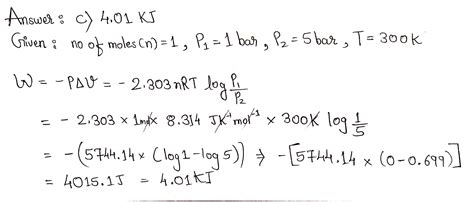 Answer : c) 4.01 KJ
Given : no of moles (n) = 1 , P₁ = 1 bar , P₂ = 5 bar , T = 300 K
W = - PΔV = - 2.303 nRT log P₁/P₂
= - 2.303 × 1 mol × 8.314 JK⁻¹ mol⁻¹ × 300K log 1/5
= - (5744.14 × (log 1 - log 5)) ⇒ - [5744.14 × (0 - 0.699)]
= 4015.1 J = 4.01 KJ